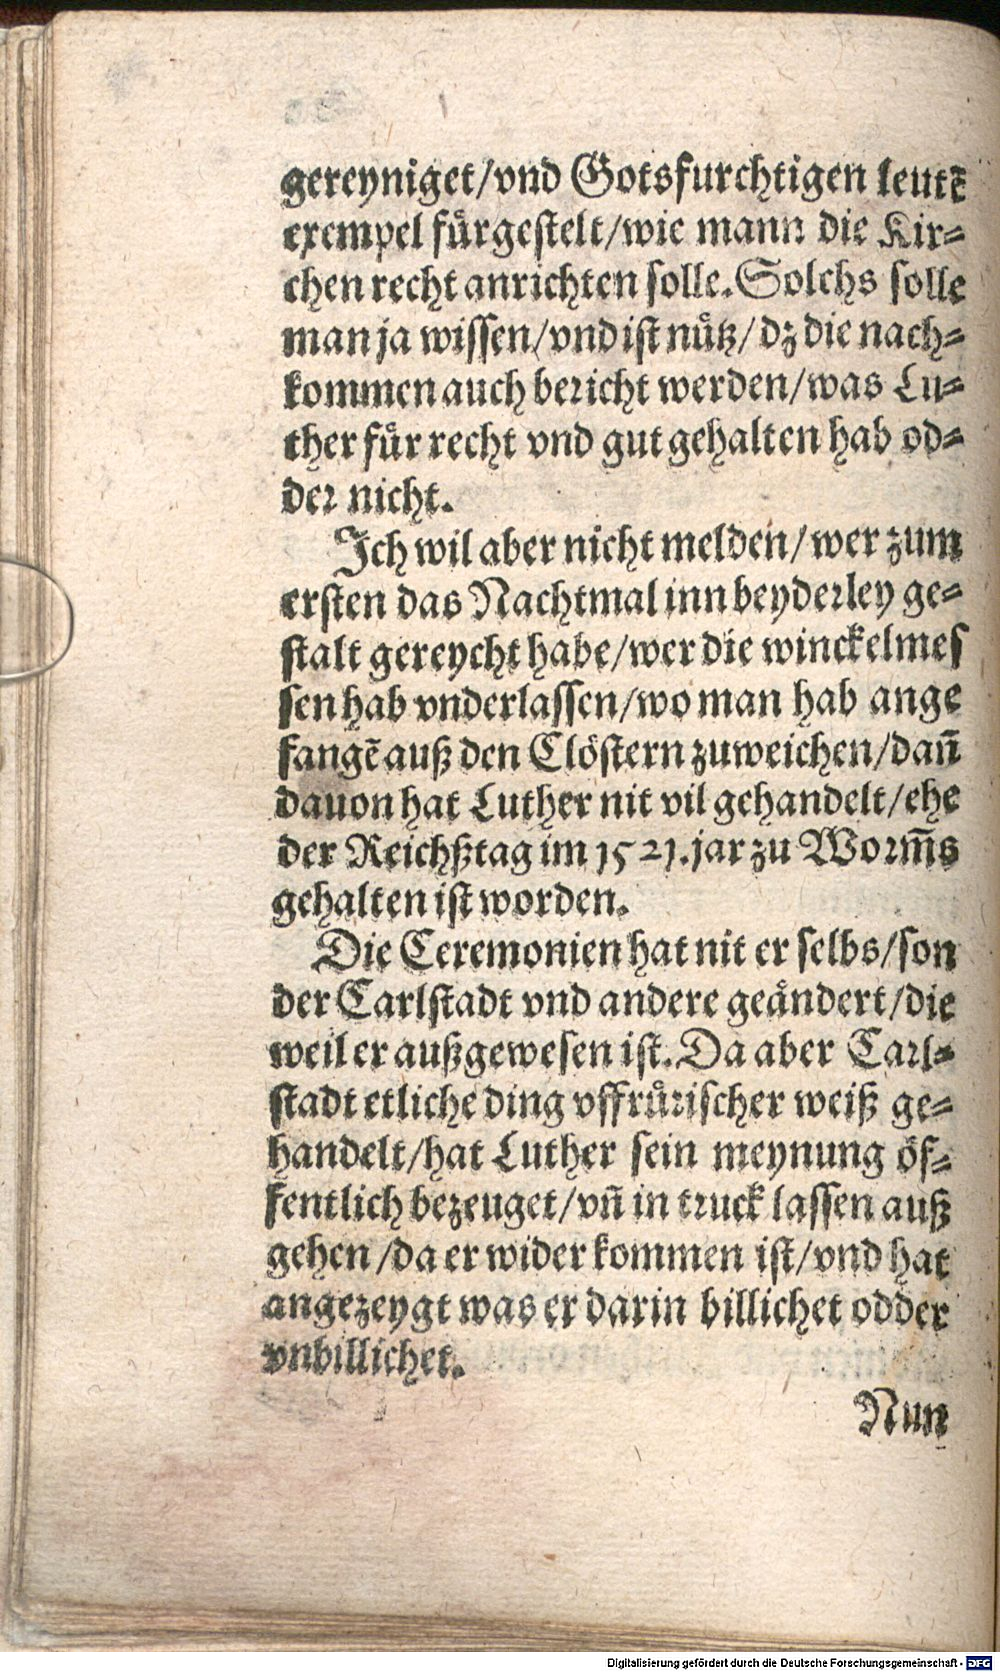 gereyniget/vnd Gotsfurchtigen leutē
exempel fuͤrgestelt/wie mann die Kir⸗
chen recht anrichten solle. Solchs solle
man ja wissen/vnd ist nuͤtz/dz die nach⸗
kommen auch bericht werden/was Lu⸗
ther fuͤr recht vnd gut gehalten hab od⸗
der nicht.
Ich wil aber nicht melden/wer zum
ersten das Nachtmal inn beyderley ge⸗
stalt gereycht habe/wer die winckelmes
sen hab vnderlassen/wo man hab ange
fangē auß den Cloͤstern zuweichen/dañ
dauon hat Luther nit vil gehandelt/ehe
der Reichßtag im 1521. jar zu Worm̄s
gehalten ist worden.
Die Ceremonien hat nit er selbs/son
der Carlstadt vnd andere geaͤndert/die
weil er außgewesen ist. Da aber Carl⸗
stadt etliche ding vffruͤrischer weiß ge⸗
handelt/hat Luther sein meynung oͤf⸗
fentlich bezeuget/vñ in truck lassen auß
gehen/da er wider kommen ist/vnd hat
angezeygt was er darin billichet odder
vnbillichet.
Nun
Digitalisierung gefördert durch die Deutsche Forschungsgemeinschaft - DFG